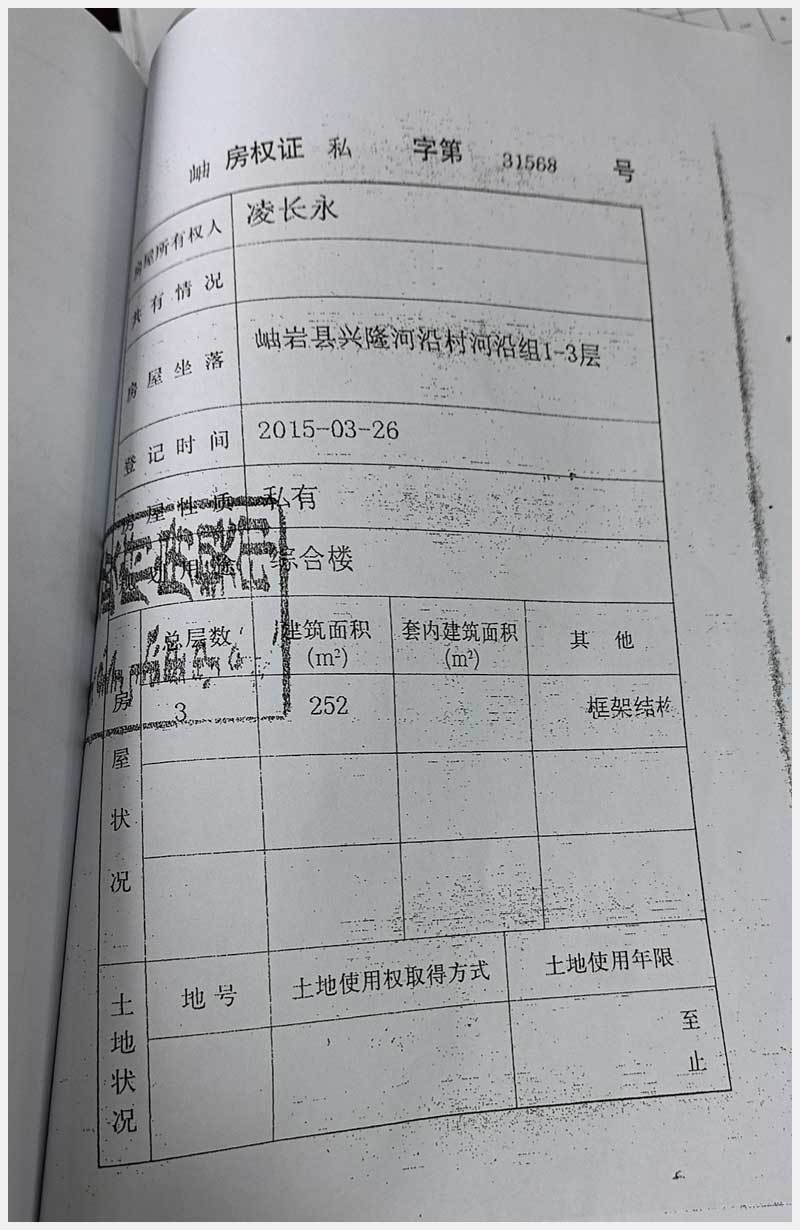 岫 房权证 私 字第 31568 号
房屋所有权人 凌长永
共有情况
房屋坐落 岫岩县兴隆河沿村河沿组1-3层
登记时间 2015-03-26
房屋性质 私有
用途 综合楼
房屋状况
总层数 建筑面积(m²) 套内建筑面积(m²) 其他
3 252 框架结构
土地状况
地号 土地使用权取得方式 土地使用年限
至
止